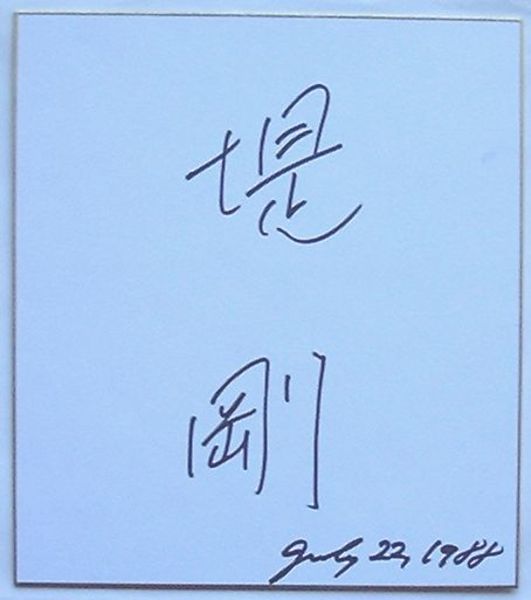 堤
剛
July 22, 1988